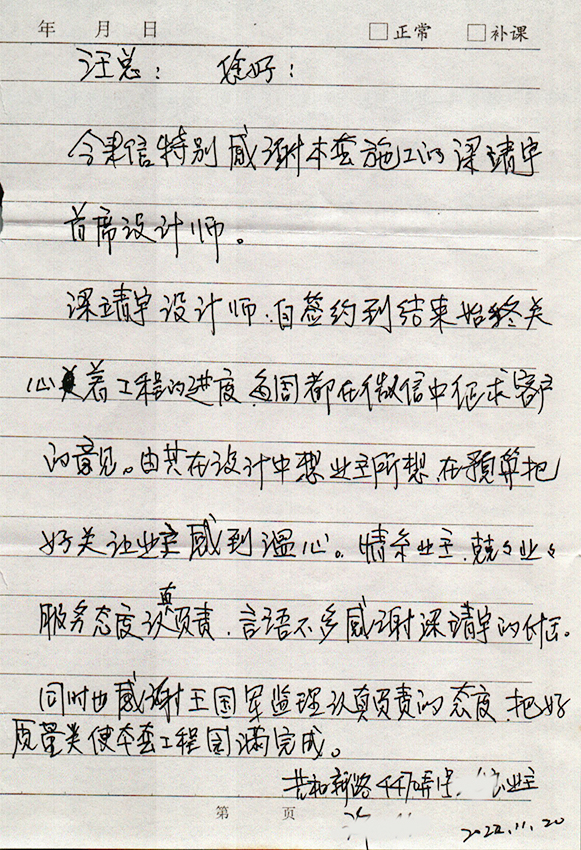 年 月 日 □正常 □补课
汪总： 您好！
今来信特别感谢本套施工的梁靖宇
首席设计师。
梁靖宇设计师，自签约到结束始终关
心着工程的进度，每周都在微信中征求客户
的意见。由其在设计中想业主所想，在预算把
好关让业主感到温心。情系业主，兢兢业业
服务态度认真负责，言语不多感谢梁靖宇的付出。
同时也感谢王国军监理认真负责的态度，把好
质量关使本套工程圆满完成。
共和新路4470弄 业主
第 页
2022.11.20